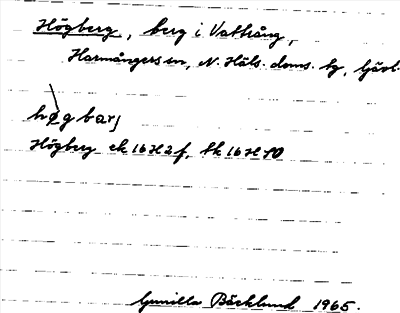 Högberg, berg i Vattrång,
Harmångers sn, N. Häls. doms. hg, Gävl.
høgbarj
Högberg ek 16H2f, tk 16H f0
Gunilla Bäcklund 1965.